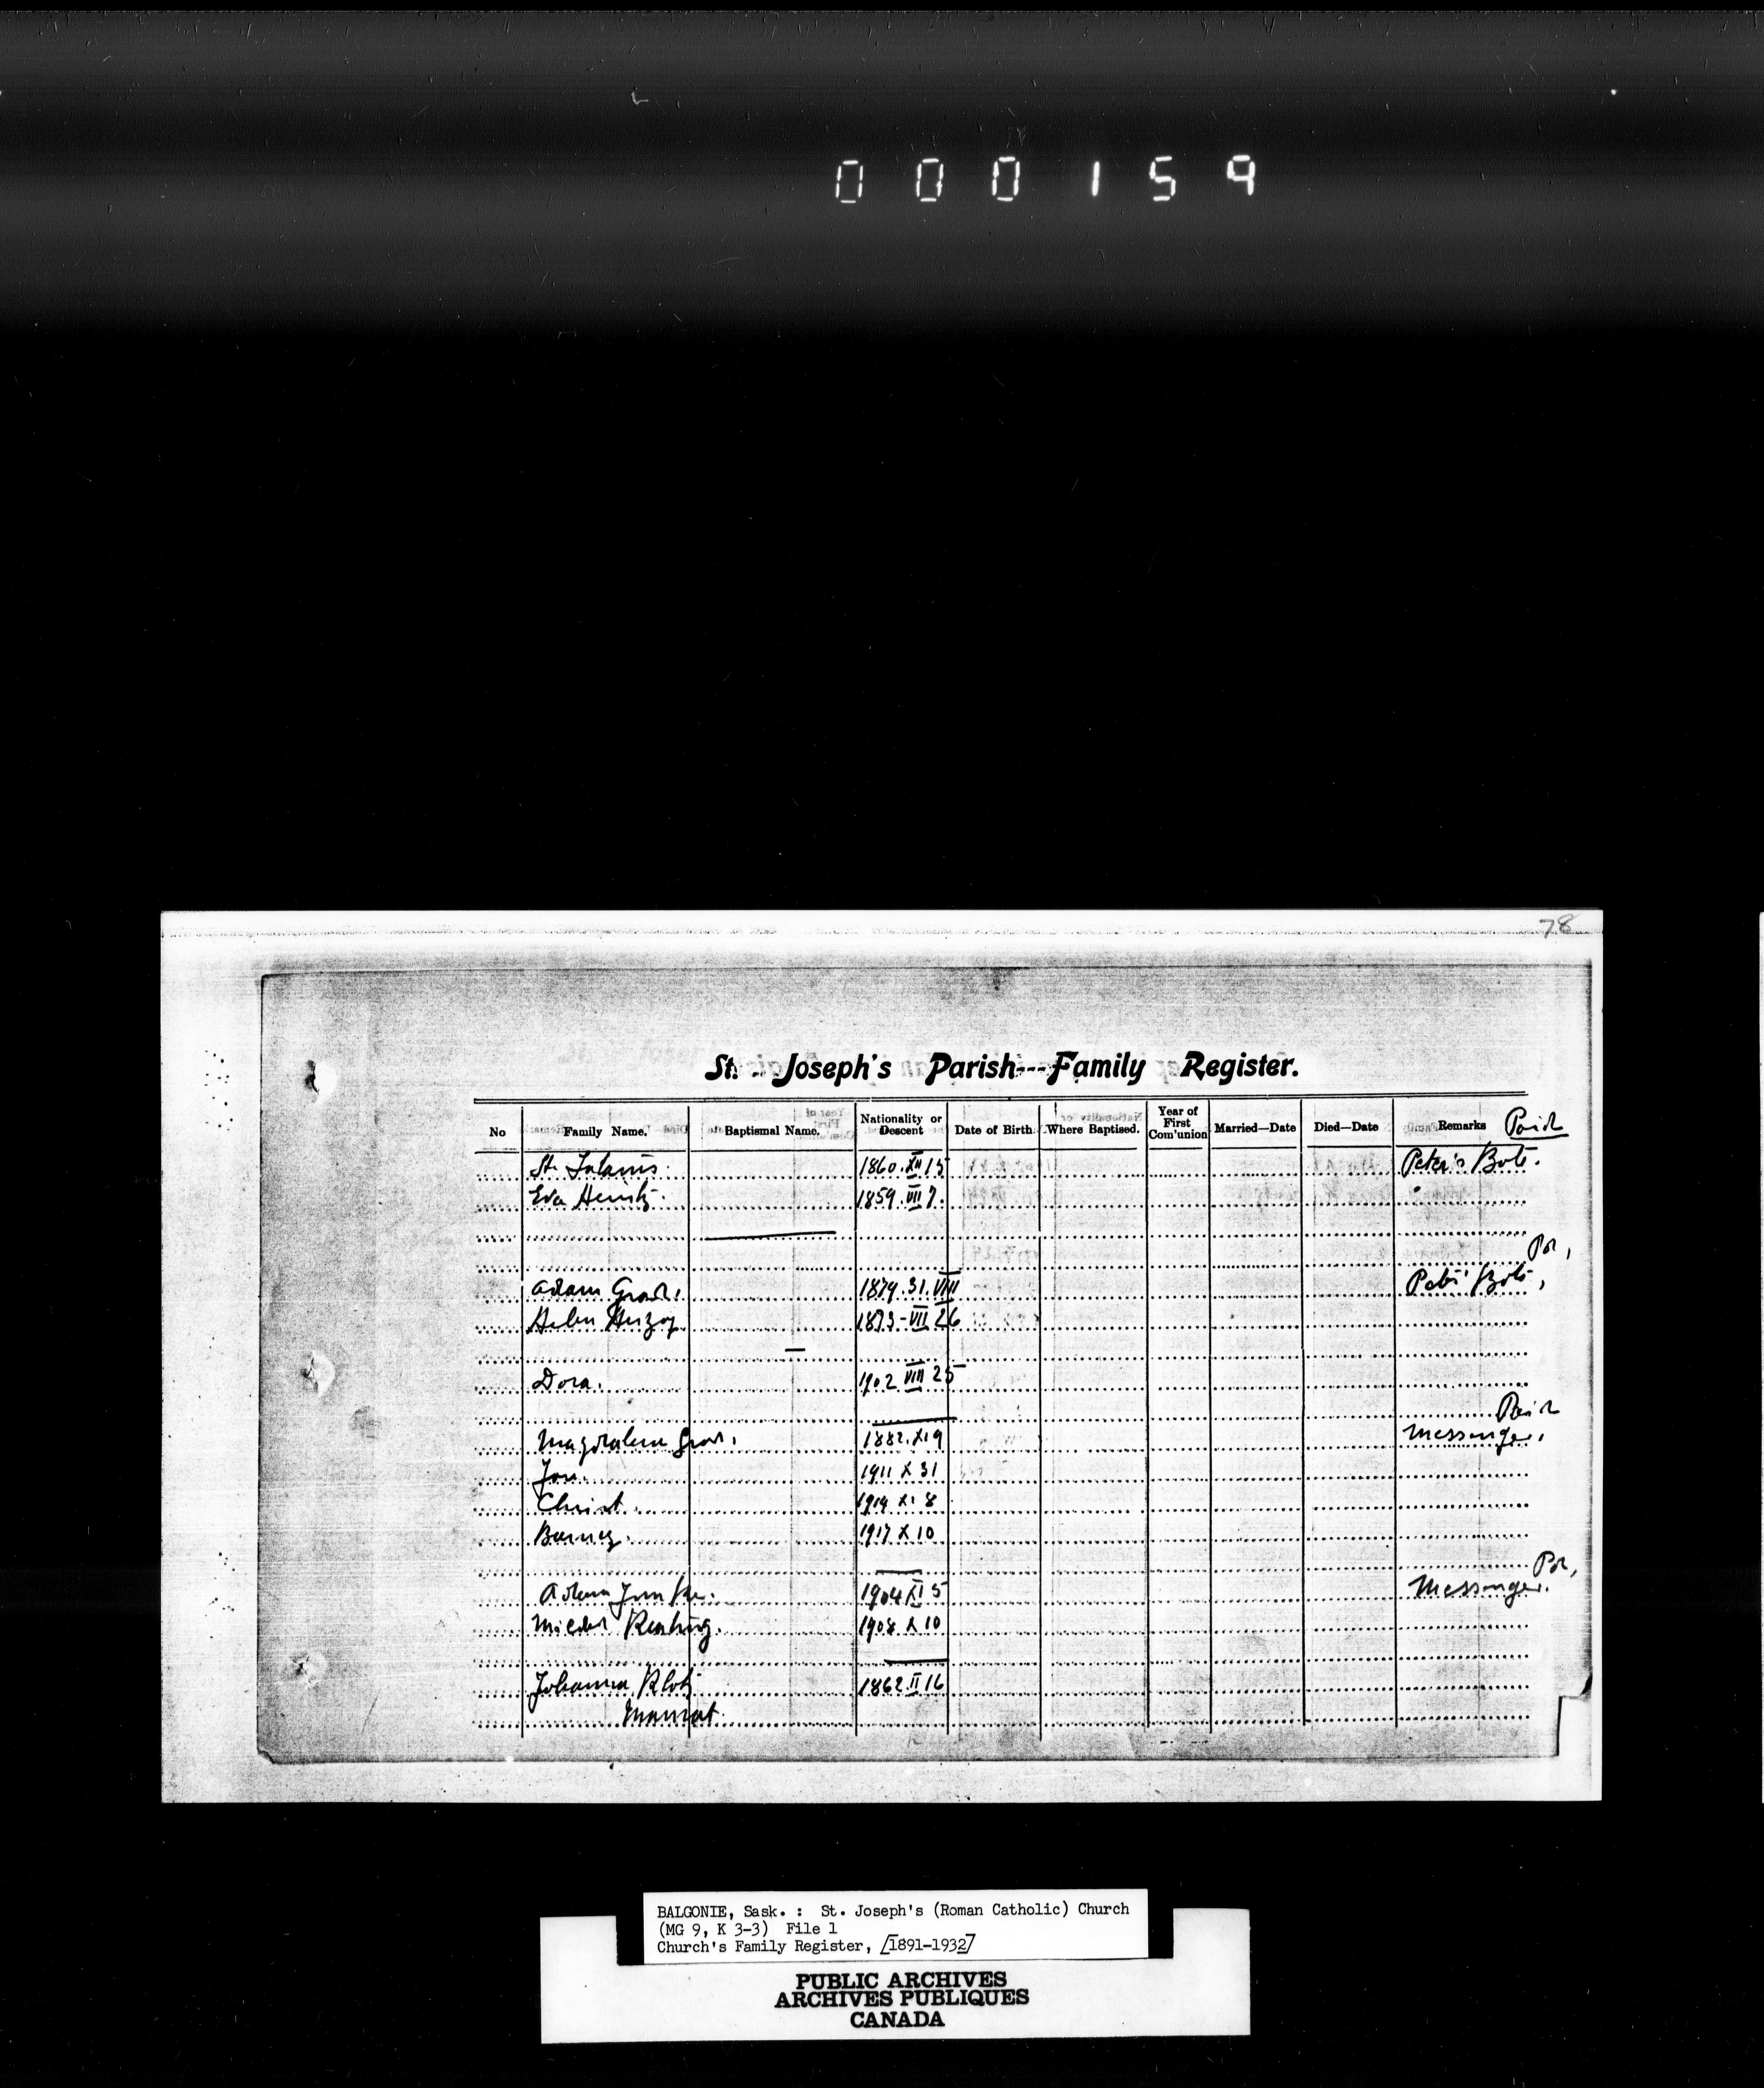 000159
78
St. Joseph's Parish---Family Register.
No Family Name. Baptismal Name. Nationality or Descent Date of Birth Where Baptised. Year of First Com'union Married—Date Died—Date Remarks Paid
St. 1860.XII 15 Peter's Bote.
Eva 1859.VII 7.
Pd,
Adam Grad. 1879.31.VIII Bote,
Helen Herzog 1873-VII 26
Dora. 1902 VIII 25
Paid
Magdalena Grad. 1882.XI 9 Messenger.
Jon. 1911 X 31
Christ. 1914 XI 8
Barney. 1917 X 10
Pd,
Adam 1904 XI 5 Messenger.
1908 X 10
Johanna Klotz 1862 II 16
BALGONIE, Sask. : St. Joseph's (Roman Catholic) Church
(MG 9, K 3-3) File 1
Church's Family Register, [1891-1932]
PUBLIC ARCHIVES
ARCHIVES PUBLIQUES
CANADA